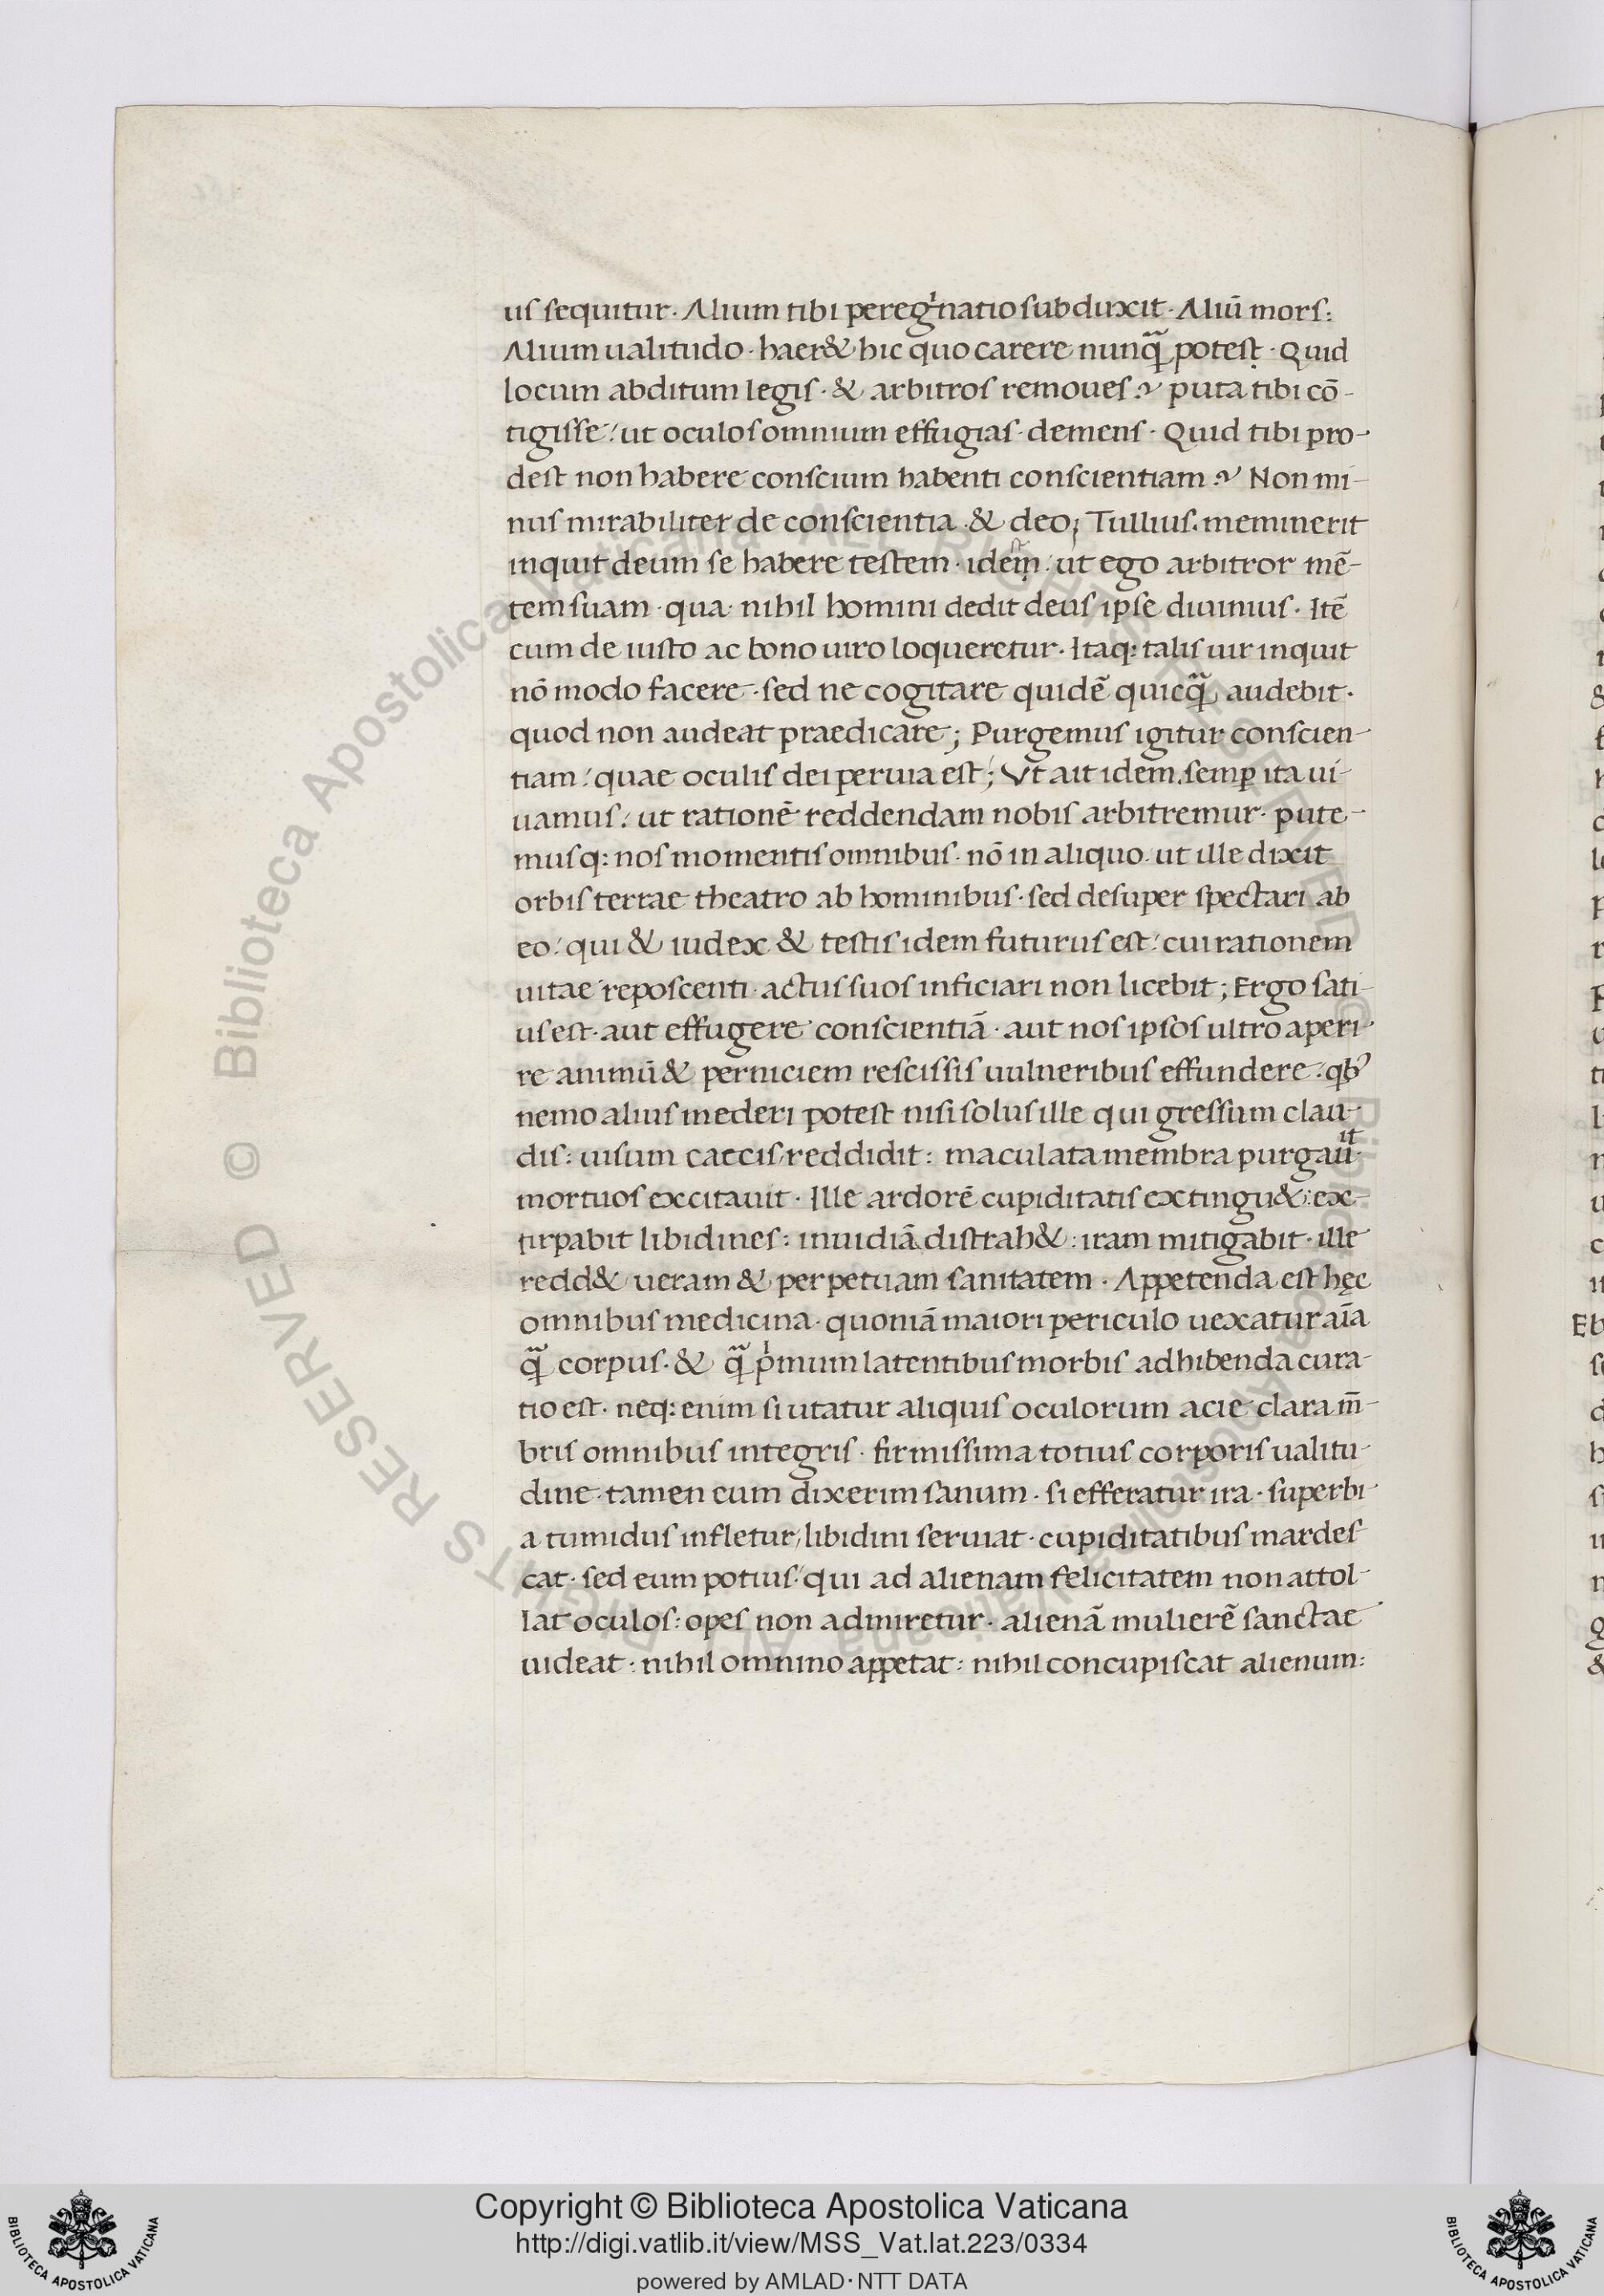 us sequitur. Alium tibi peregⁱnatio subduxit. Aliū mors:
Alium ualitudo. haer& hic quo carere nunq̃ potest. Quid
locum abditum legis. & arbitros remoues? puta tibi cō-
tigisse: ut oculos omnium effugias. demens. Quid tibi pro-
dest non habere conscium habenti conscientiam? Non mi-
nus mirabiliter de conscientia & deo; Tullius. meminerit
inquit deum se habere testem. ut ego arbitror mē-
tem suam. qua. nihil homini dedit deus ipse diuinius. Itē
cum de iusto ac bono uiro loqueretur. Itaq: talis uir inquit
nō modo facere. sed ne cogitare quidē quicq̃ audebit.
quod non audeat praedicare; Purgemus igitur conscien-
tiam: quae oculis dei peruia est; Vt ait idem. semꝑ ita ui-
uamus: ut rationē reddendam nobis arbitremur. pute-
musq: nos momentis omnibus. nō in aliquo. ut ille dixit
orbis terrae theatro ab hominibus. sed desuper spectari ab
eo: qui & iudex & testis idem futurus est: cui rationem
uitae reposcenti. actus suos inficiari non licebit; Ergo sati-
us est. aut effugere conscientiā. aut nos ipsos ultro aperi-
re animū & perniciem rescissis uulneribus effundere: qb᾽
nemo alius mederi potest nisi solus ille qui gressum clau-
dis: uisum caecis reddidit: maculata membra purgauit
mortuos excitauit. Ille ardorē cupiditatis extingu&: ex-
tirpabit libidines: inuidiā distrah&: iram mitigabit. ille
redd& ueram & perpetuam sanitatem. Appetenda est hęc
omnibus medicina. quoniā maiori periculo uexatur aīa
q̃ corpus. & q̃ pⁱmum latentibus morbis adhibenda cura-
tio est. neq: enim si utatur aliquis oculorum acie clara m̄-
bris omnibus integris. firmissima totius corporis ualitu-
dine. tamen eum dixerim sanum. si efferatur ira. superbi
a tumidus infletur, libidini seruiat. cupiditatibus mardes
cat. sed eum potius: qui ad alienam felicitatem non attol-
lat oculos: opes non admiretur. alienā mulierē sanctae
uideat. nihil omnino appetat: nihil concupiscat alienum:
© Biblioteca Apostolica Vaticana ALL RIGHTS RESERVED © Biblioteca Apostolica Vaticana ALL RIGHTS RESERVED
Copyright © Biblioteca Apostolica Vaticana
http://digi.vatlib.it/view/MSS_Vat.lat.223/0334
powered by AMLAD·NTT DATA
BIBLIOTECA APOSTOLICA VATICANA
BIBLIOTECA APOSTOLICA VATICANA